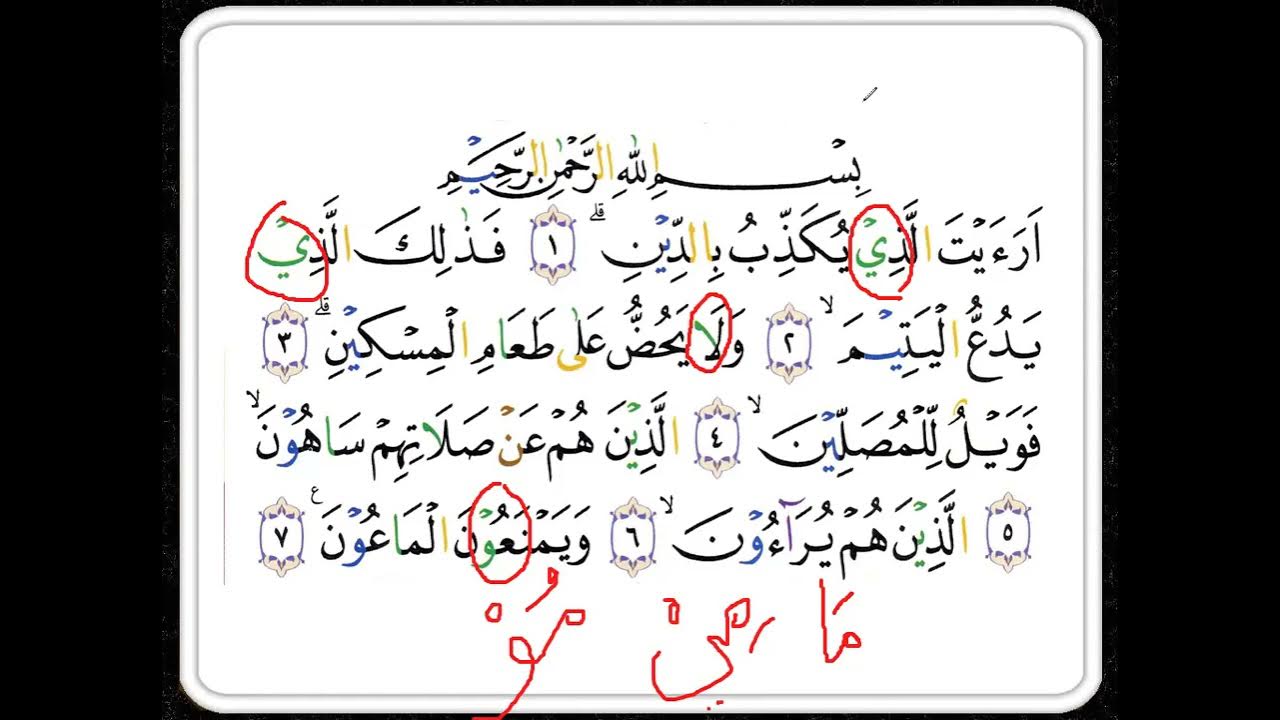 بِسْمِ اللّٰهِ الرَّحْمٰنِ الرَّحِيْمِ
اَرَءَيْتَ الَّذِيْ يُكَذِّبُ بِالدِّيْنِۗ ١ فَذٰلِكَ الَّذِيْ
يَدُعُّ الْيَتِيْمَۙ ٢ وَلَا يَحُضُّ عَلٰى طَعَامِ الْمِسْكِيْنِۗ ٣
فَوَيْلٌ لِّلْمُصَلِّيْنَۙ ٤ الَّذِيْنَ هُمْ عَنْ صَلَاتِهِمْ سَاهُوْنَۙ
٥ الَّذِيْنَ هُمْ يُرَاۤءُوْنَۙ ٦ وَيَمْنَعُوْنَ الْمَاعُوْنَ ࣖ ٧
مَا مِيْ مُوْ